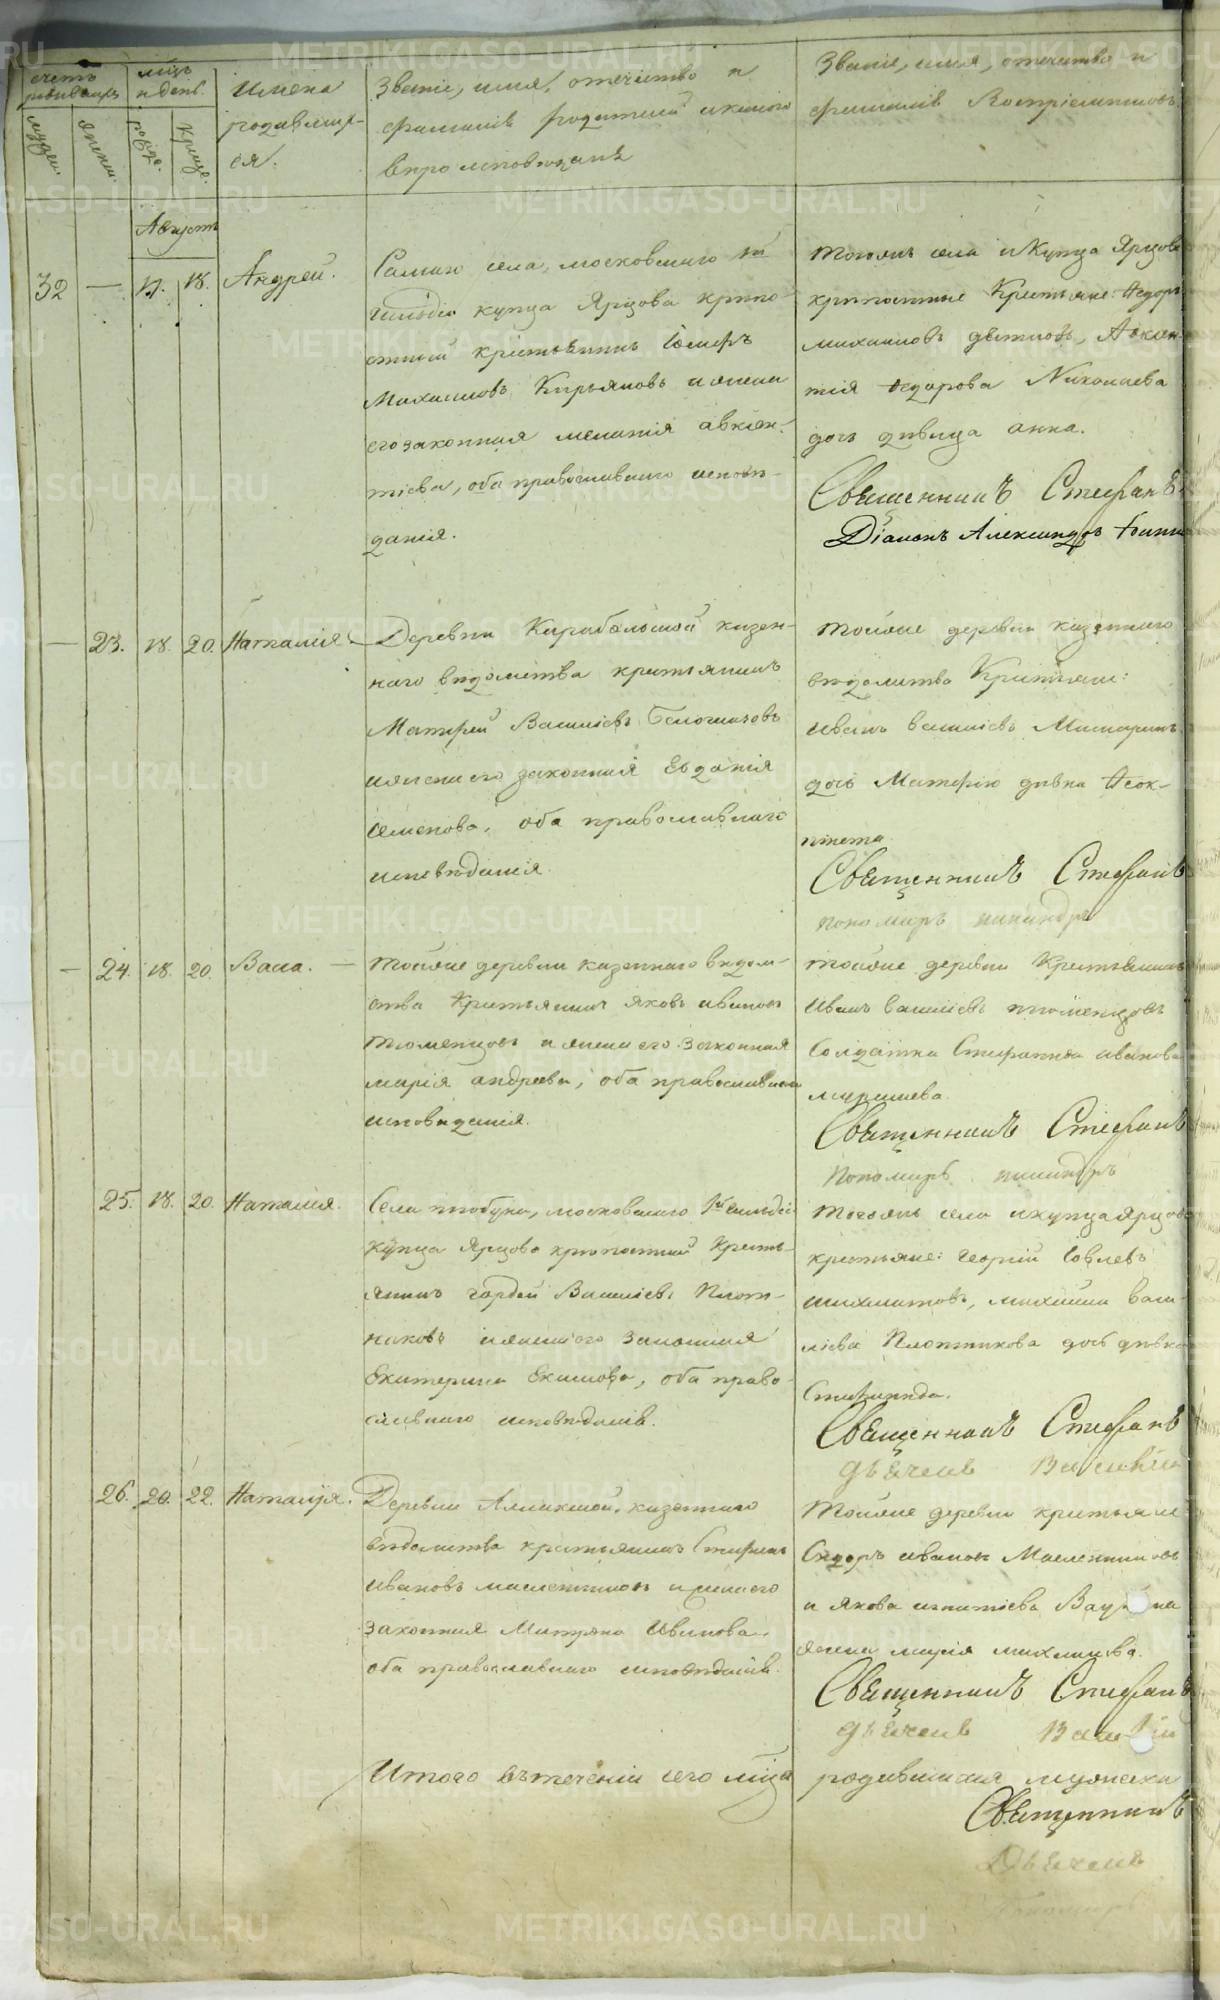 счетъ родившихся
мцъ и день
Имена родившихся.
Званіе, имя, отечество и
фамилія родителей и какого
вероисповеданія
Званіе, имя, отечество и
фамилія Воспріемниковъ
мужеск.
женск.
рожде.
креще.
Августъ
32 — 17. 18. Андрей.
Самаго села, московскаго
гильдіи купца Ярцова крепо-
стный крестьянинъ Іосифъ
Михаиловъ Кирьяновъ и жена
его законная меланія авксен-
тіева, оба православнаго испове-
данія.
тогожъ села и Купца Ярцова
крепостные Крестьяне: Ѳедоръ
михаиловъ
Ѳедорова Николаева
дочь девица анна.
Священникъ Стефанъ
Діаконъ Александръ
— 23. 18. 20. Наталія.
Деревни Карабольской казен-
наго ведомства крестьянинъ
Матфей Василіевъ Белоглазовъ
и жена его законная Евданія
Семенова, оба православнаго
исповеданія.
тойже деревни казеннаго
ведомства Крестьяне:
Иванъ василіевъ
дочь девка Ѳеок-
тиста
Священникъ Стефанъ
пономарь никандръ
— 24. 18. 20. Васса. —
тойже деревни казеннаго ведом-
ства Крестьянинъ Яковъ ивановъ
тюменцовъ и жена его законная
марія андреева, оба православнаго
исповеданія.
тойже деревни Крестьянинъ
Иванъ василіевъ тюменцовъ
Солдатка Стефанида иванова
Священникъ Стефанъ
Пономарь никандръ
25. 18. 20. Наталія.
Села московскаго 1й гильдіи
Купца Ярцова крепостный Кресть-
янинъ гордей Василіевъ Плот-
никовъ и жена его законная
Екатерина Екимова, оба право-
славнаго исповеданія.
тогожъ села и купца Ярцова
крестьяне: Георгій Іовлевъ
васи-
лієва Плотникова дочь девка
Стефанида.
Священникъ Стефанъ
дьячекъ Василій
26. 20. 22. Наталія.
Деревни казеннаго
ведомства крестьянинъ Стефанъ
Ивановъ масленниковъ и жена его
законная Матрона Иванова.
оба православнаго исповеданія.
тойже деревни крестьяне
Сидоръ ивановъ Масленниковъ
и Якова игнатіева
жена марія михаилова.
Священникъ Стефанъ
дьячекъ Василій
Итого въ теченіи сего мца родившихся мужеска
Священникъ
Дьячекъ
Пономарь
METRIKI.GASO-URAL.RU